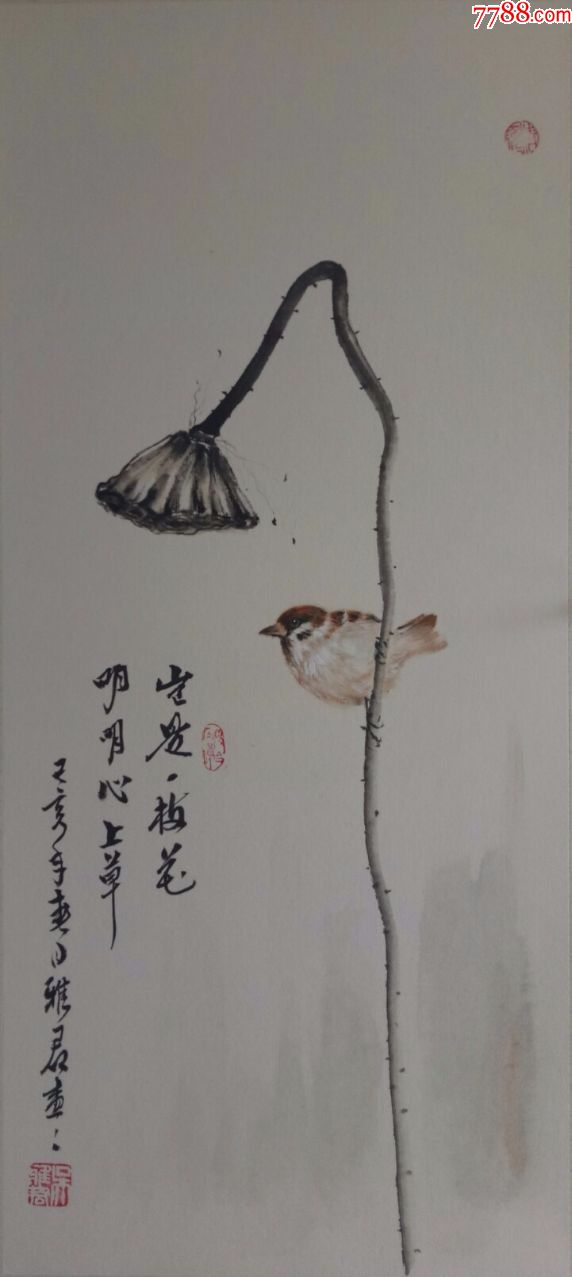 7788.com
岂是一枝花
明明心上草
己亥年春日雅君画